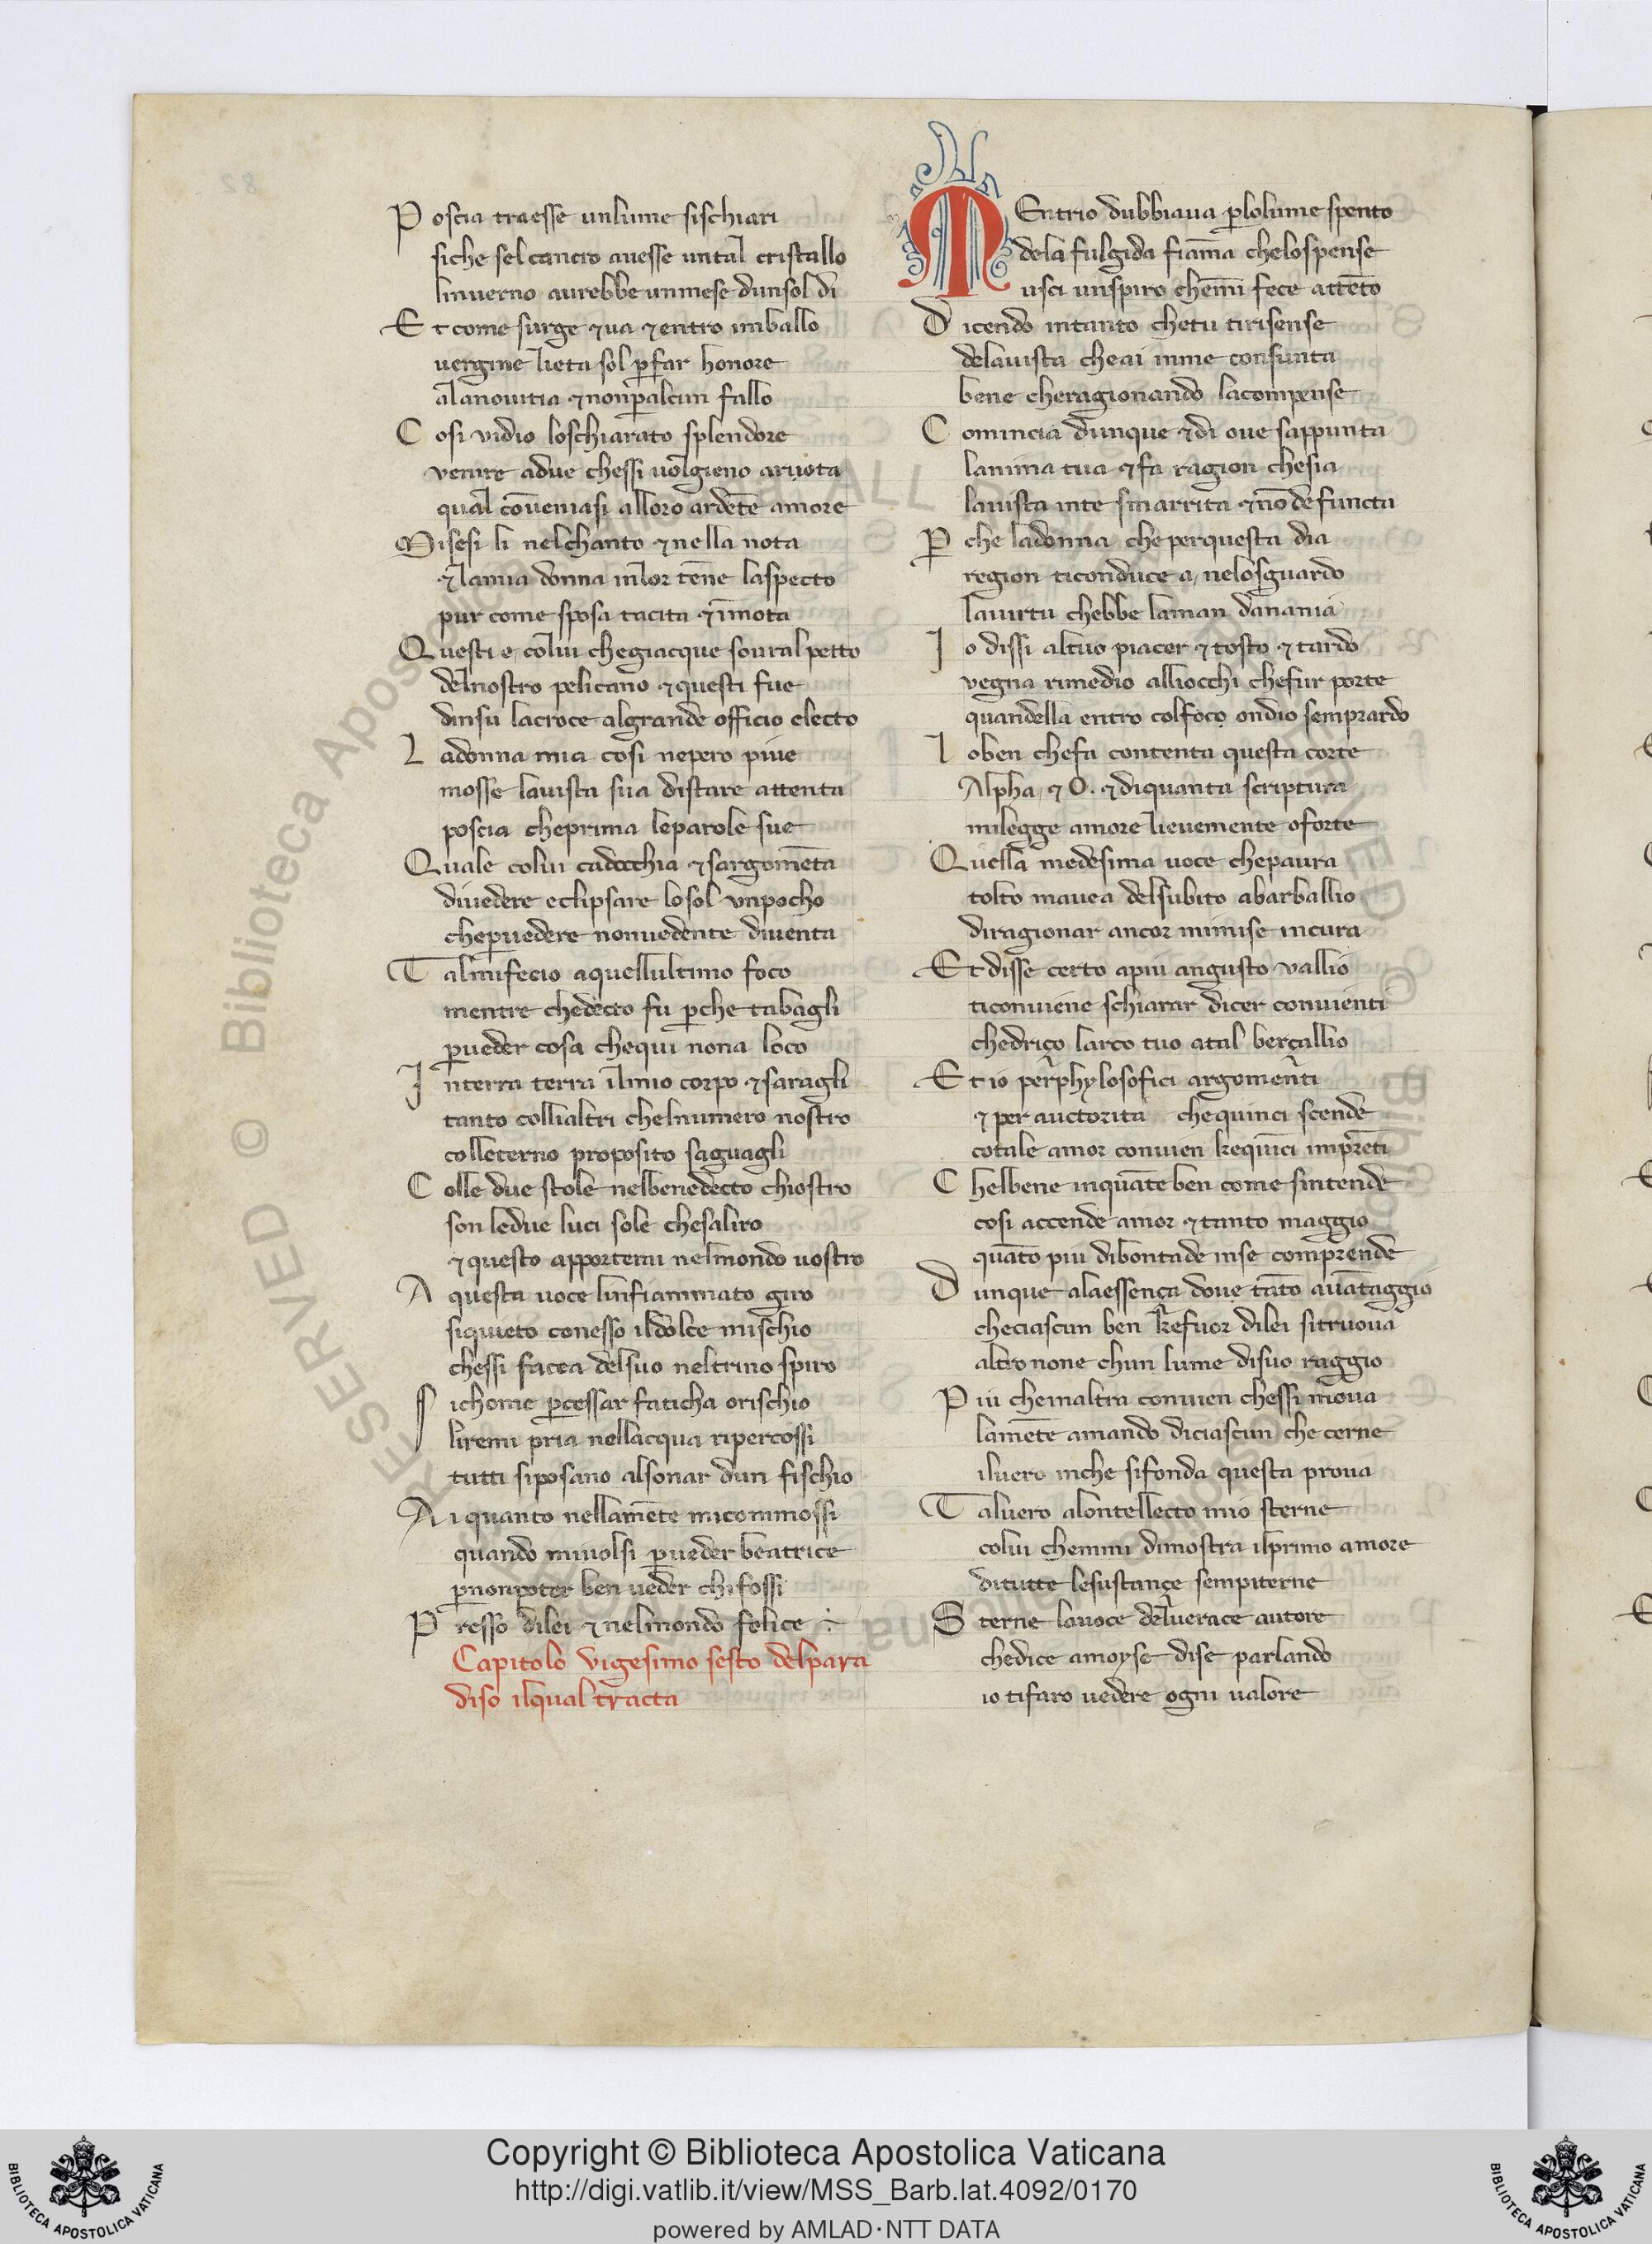 P oscia traesse unlume sischiari
siche sel cancro auesse untal cristallo
linuerno aurebbe unmese dunsol di
E t come surge ⁊ ua ⁊ entro inballo
uergine lieta sol ꝑ far honore
alanouitia ⁊ non ꝑalcun fallo
C osi uidio loschiarato splendore
venire adue chessi uolgieno aruota
qual cōueniasi alloro ardēte amore
Misesi li nelchanto ⁊ nella nota
⁊ lamia donna inlor tēne laspecto
pur come sposa tacita ⁊ īmota
Questi e colui chegiacque soural petto
delnostro pelicano ⁊ questi fue
dinsu lacroce algrande officio electo
L adonna mia cosi nepero piue
mosse lauista sua distare attenta
poscia cheprima leparole sue
Quale colui cadocchia ⁊ sargomēta
diuedere eclipsare losol unpocho
cheꝑuedere nonuedente diuenta
T almifecio aquellultimo foco
mentre chedecto fu ꝑche tabagli
ꝑueder cosa chequi nona loco
I nterra terra ilmio corpo ⁊ saragli
tanto collialtri chelnumero nostro
colleterno proposito saguagli
C olle due stole nelbenedecto chiostro
son ledue luci sole chesaliro
⁊ questo apporterai nelmondo uostro
A questa uoce linfiammato giro
siquieto conesso ildolce mischio
chessi facea delsuo neltrino spiro
S ichome ꝑcessar faticha orischio
liremi pria nellacqua ripercossi
tutti siposano alsonar dun fischio
A i quanto nellamēte micommossi
quando miuolsi ꝑueder beatrice
ꝑnonpoter ben ueder chifossi
P resso dilei ⁊ nelmondo felice
Capitolo vigesimo sesto delpara
diso ilqual tracta
M Entrio dubbiaua ꝑlolume spento
dela fulgida fiam̄a chelospense
usci unspiro chem̄i fece attēto
D icendo intanto chetu tirisense
delauista cheai inme consunta
bene cheragionando lacompense
C omincia dunque ⁊ di oue sappunta
lanima tua ⁊ fa ragion chesia
lauista inte smarrita ⁊ nō defuncta
P che ladonna che perquesta dia
region ticonduce a nelosguardo
lauirtu chebbe laman danania
I o dissi altuo piacer ⁊ tosto ⁊ tardo
vegna rimedio alliocchi chefur porte
quandella entro colfoco ondio semprardo
l oben chefa contenta questa corte
Alpha ⁊ O. ⁊ diquanta scriptura
milegge amore lieuemente oforte
Quella medesima uoce chepaura
tolto mauea delsubito abarballio
diragionar ancor mimise incura
E t disse certo apiu angusto vallio
ticonuiene schiarar dicer conuienti
chedriço larco tuo atal berçallio
E t io per phylosofici argomenti
⁊ per auctorita chequinci scende
cotale amor conuien keqīnci imprēti
C helbene inquāte ben come sintende
cosi accende amor ⁊ tanto maggio
quāto piu dibontade inse comprende
D unque alaessença doue tāto auātaggio
checiascun ben kefuor dilei sitruoua
altro none chun lume disuo raggio
P iu cheinaltra conuien chessi moua
lamēte amando diciascun che cerne
iluero inche sifonda questa proua
T aluero alontellecto mio sterne
colui chemmi dimostra ilprimo amore
ditutte lesustançe sempiterne
S terne lauoce delverace autore
chedice amoyse dise parlando
io tifaro uedere ogni ualore
Copyright © Biblioteca Apostolica Vaticana
http://digi.vatlib.it/view/MSS_Barb.lat.4092/0170
powered by AMLAD·NTT DATA
BIBLIOTECA APOSTOLICA VATICANA
BIBLIOTECA APOSTOLICA VATICANA